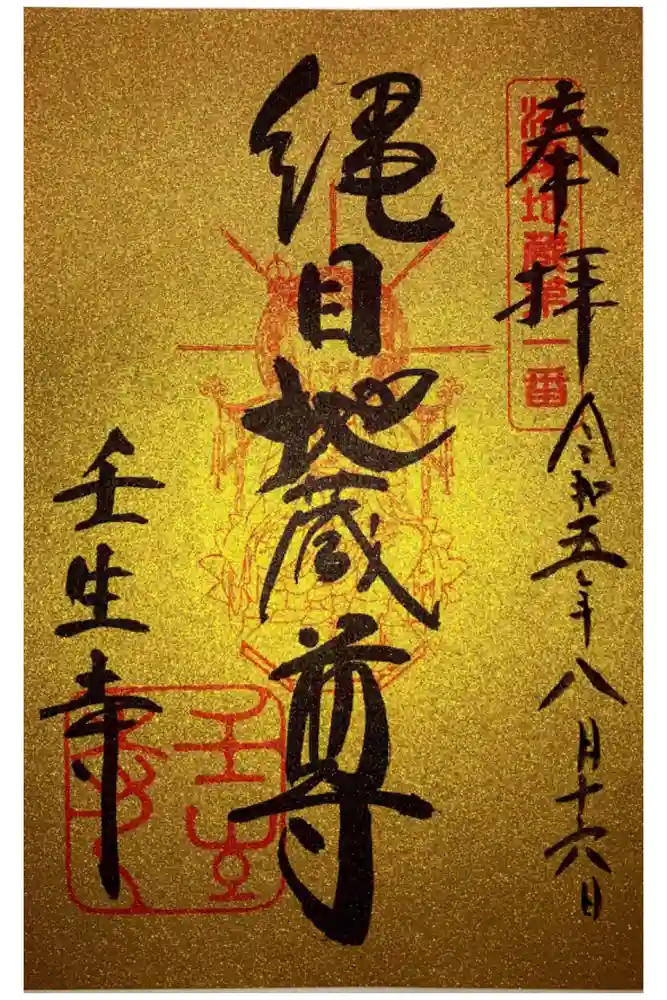 奉拝 令和五年八月十六日
洛陽地蔵第一番
縄目地蔵尊
壬生寺